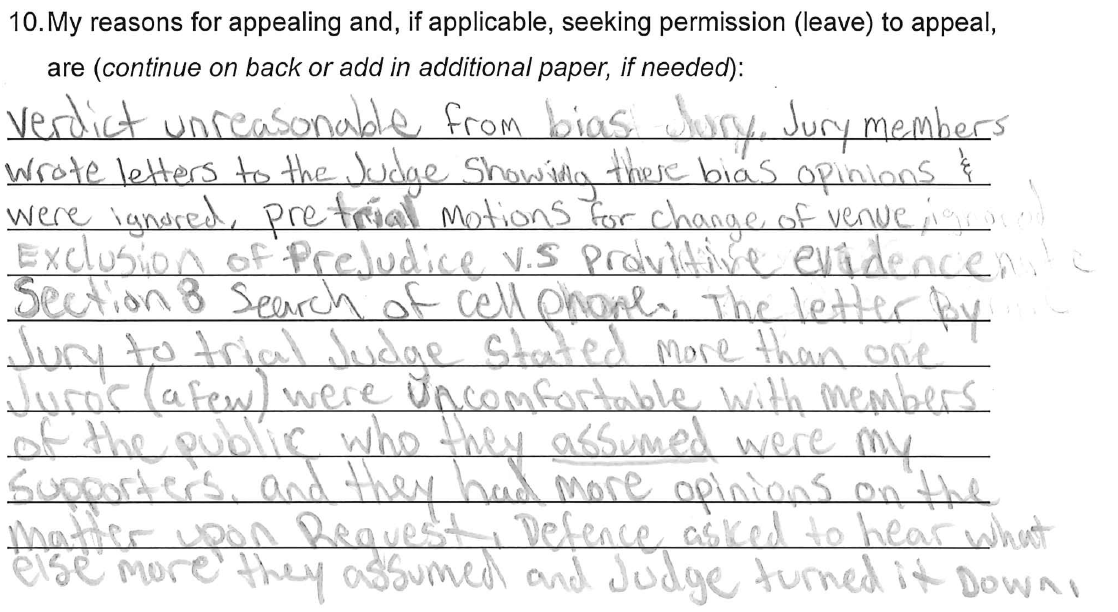 10. My reasons for appealing and, if applicable, seeking permission (leave) to appeal,
are (continue on back or add in additional paper, if needed):
Verdict unreasonable from bias Jury. Jury members
wrote letters to the Judge Showing there bias opinions &
were ignored, pre trial Motions for change of venue, ignored
Exclusion of Prejudice v.s Provitive evidence
Section 8 Search of cell phone. The letter By
Jury to trial Judge Stated more than one
Juror (a few) were Uncomfortable with members
of the public who they assumed were my
Supporters, and they had more opinions on the
matter upon Request, Defence asked to hear what
else more they assumed and Judge turned it Down.